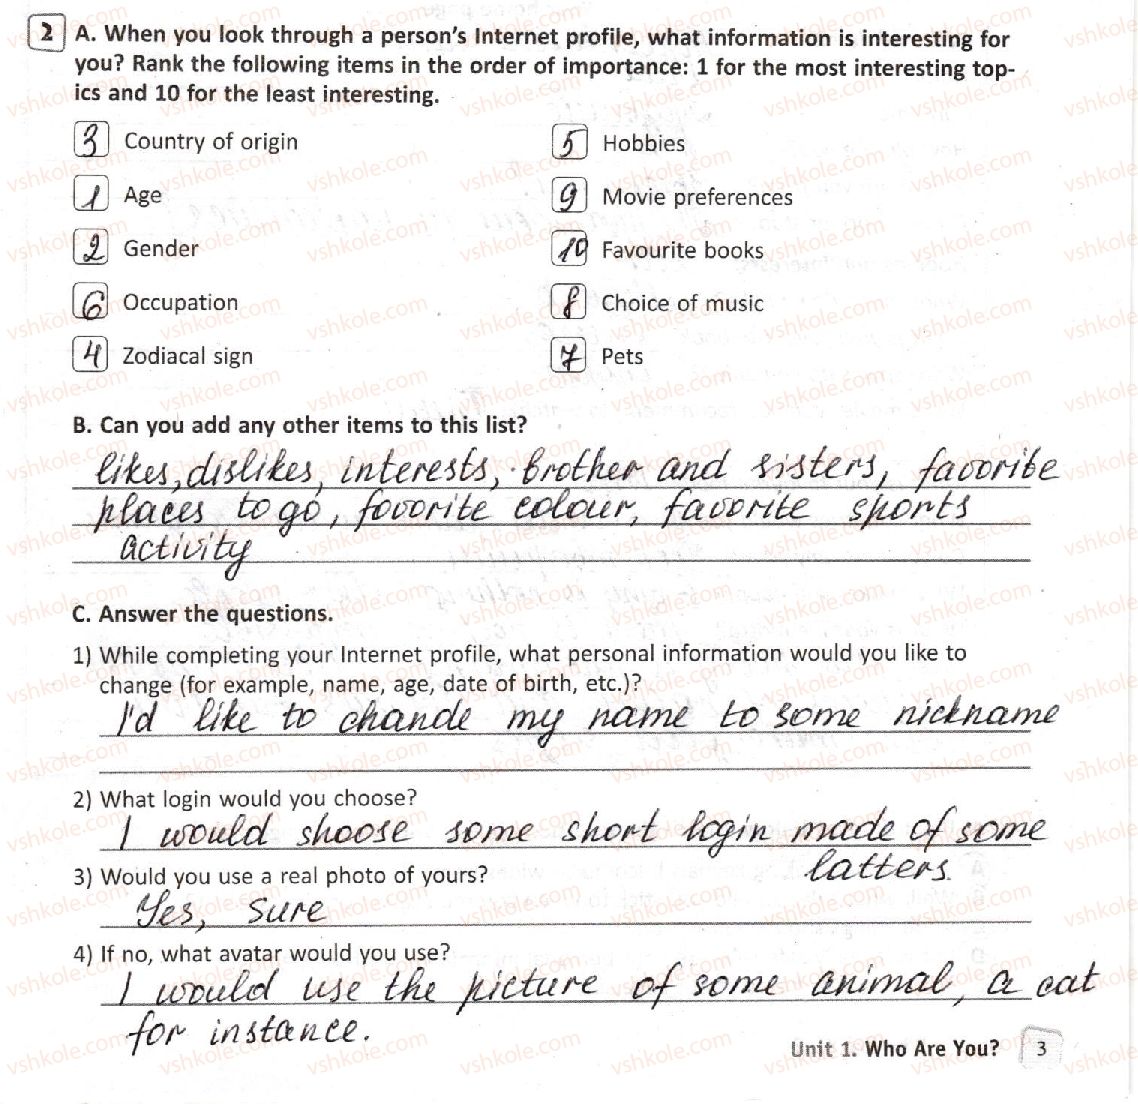 2 A. When you look through a person's Internet profile, what information is interesting for
you? Rank the following items in the order of importance: 1 for the most interesting top-
ics and 10 for the least interesting.
3 Country of origin
1 Age
2 Gender
6 Occupation
4 Zodiacal sign
5 Hobbies
9 Movie preferences
10 Favourite books
8 Choice of music
7 Pets
B. Can you add any other items to this list?
likes, dislikes, interests, brother and sisters, favoribe
places to go, fovorite colour, favorite sports
activity
C. Answer the questions.
1) While completing your Internet profile, what personal information would you like to
change (for example, name, age, date of birth, etc.)?
I'd like to chande my name to some nickname
2) What login would you choose?
I would shoose some short login made of some
latters.
3) Would you use a real photo of yours?
Yes, sure
4) If no, what avatar would you use?
I would use the picture of some animal, a cat
for instance.
Unit 1. Who Are You? 3
vshkole.com